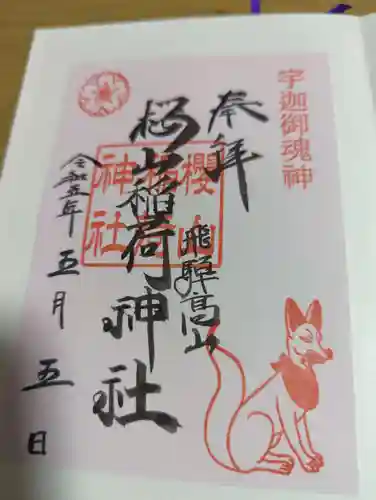 宇迦御魂神
奉拝
飛騨高山
桜山稲荷神社
櫻山稲荷神社
令和五年 五月 五日